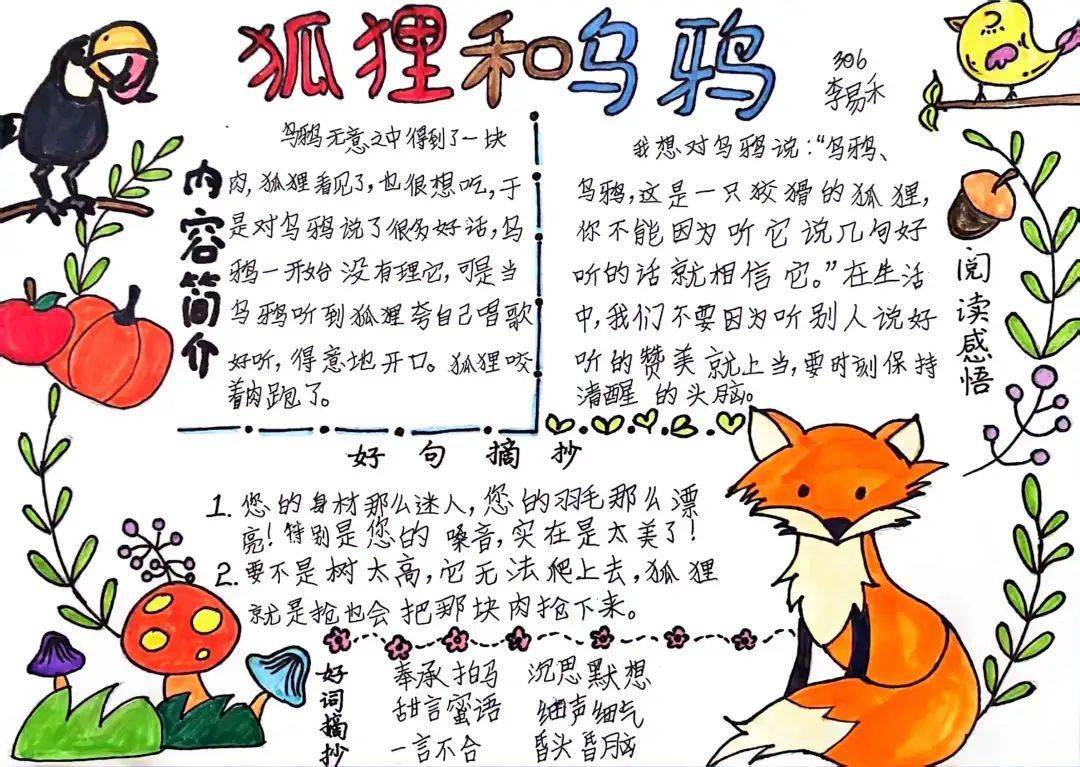 狐狸和乌鸦
306
李易禾
内容简介
乌鸦无意之中得到了一块
肉,狐狸看见了,也很想吃,于
是对乌鸦说了很多好话,乌
鸦一开始没有理它,可是当
乌鸦听到狐狸夸自己唱歌
好听,得意地开口。狐狸咬
着肉跑了。
阅读感悟
我想对乌鸦说:“乌鸦、
乌鸦,这是一只狡猾的狐狸,
你不能因为听它说几句好
听的话就相信它。”在生活
中,我们不要因为听别人说好
听的赞美就上当,要时刻保持
清醒的头脑。
好句摘抄
1. 您的身材那么迷人,您的羽毛那么漂
亮!特别是您的嗓音,实在是太美了!
2. 要不是树太高,它无法爬上去,狐狸
就是抢也会把那块肉抢下来。
好词摘抄
奉承拍马 沉思默想
甜言蜜语 细声细气
一言不合 昏头昏脑